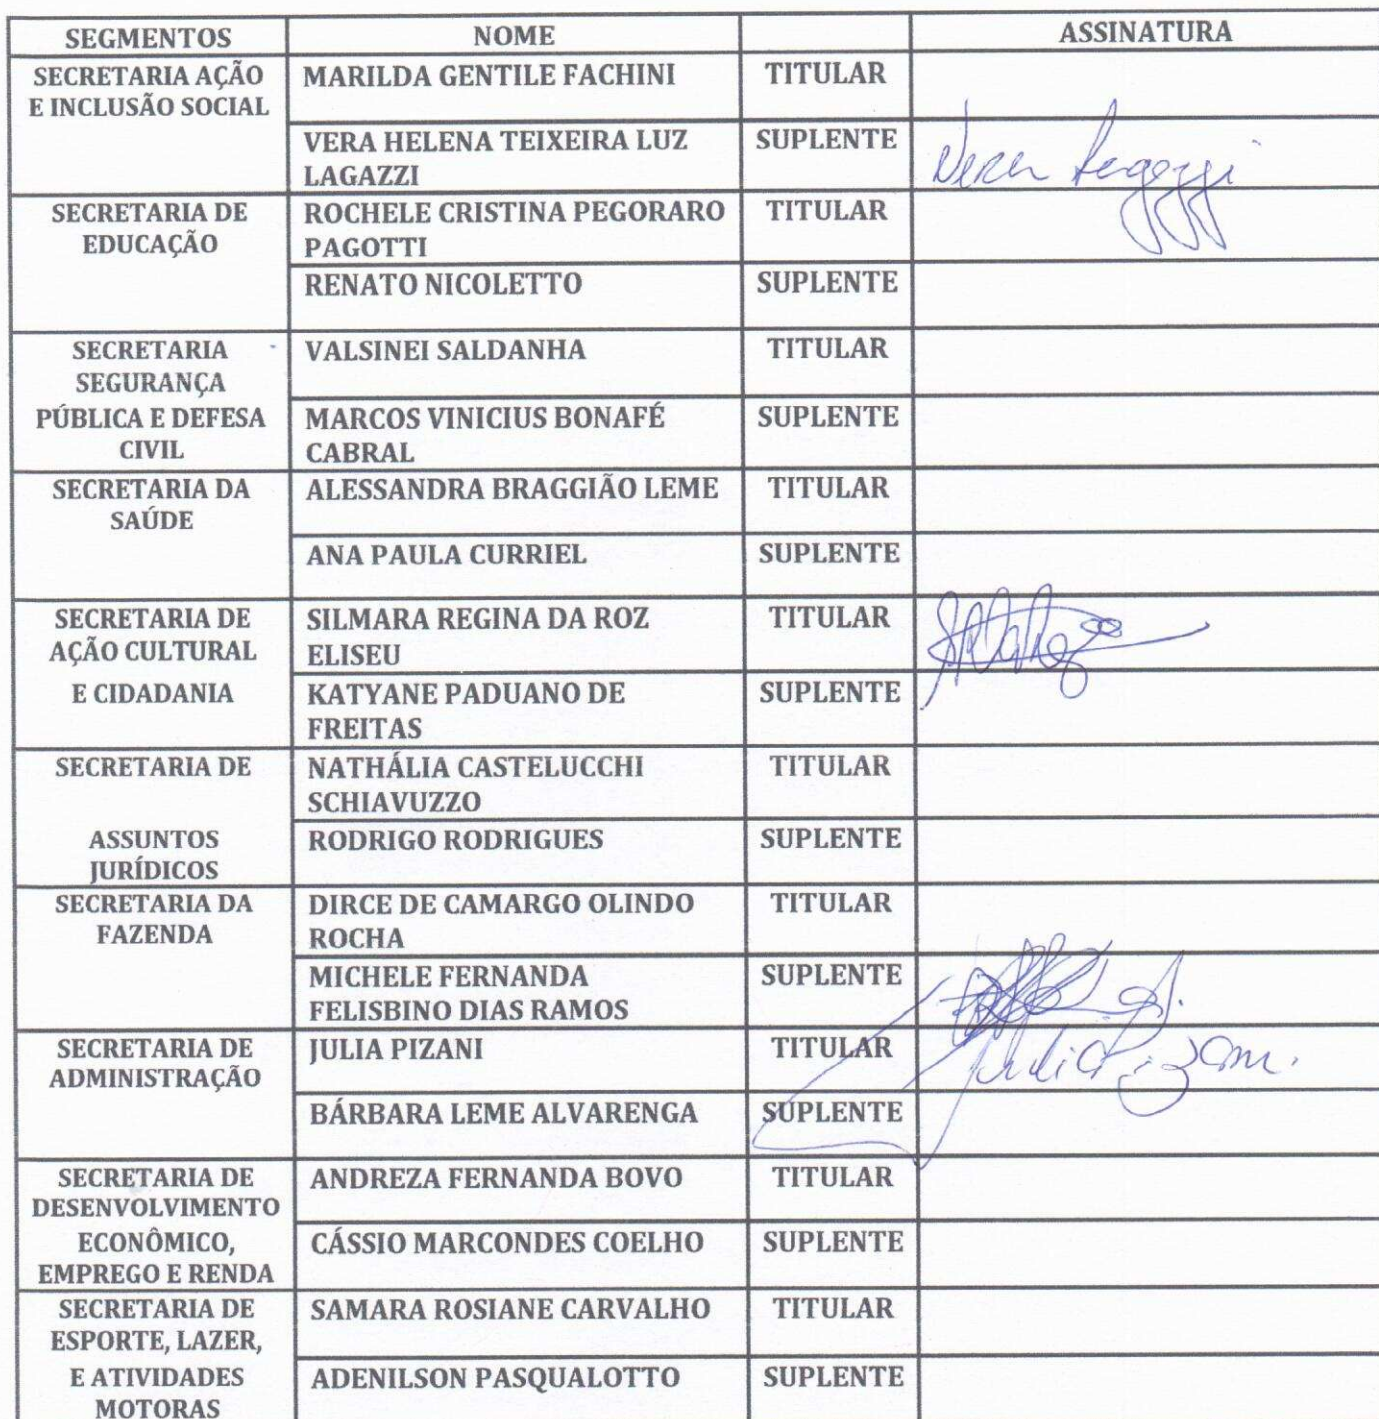 SEGMENTOS NOME ASSINATURA
SECRETARIA AÇÃO
E INCLUSÃO SOCIAL
MARILDA GENTILE FACHINI TITULAR
VERA HELENA TEIXEIRA LUZ
LAGAZZI
SUPLENTE
Vera Lagazzi
SECRETARIA DE
EDUCAÇÃO
ROCHELE CRISTINA PEGORARO
PAGOTTI
TITULAR
RENATO NICOLETTO SUPLENTE
SECRETARIA
SEGURANÇA
PÚBLICA E DEFESA
CIVIL
VALSINEI SALDANHA TITULAR
MARCOS VINICIUS BONAFÉ
CABRAL
SUPLENTE
SECRETARIA DA
SAÚDE
ALESSANDRA BRAGGIÃO LEME TITULAR
ANA PAULA CURRIEL SUPLENTE
SECRETARIA DE
AÇÃO CULTURAL
E CIDADANIA
SILMARA REGINA DA ROZ
ELISEU
TITULAR
KATYANE PADUANO DE
FREITAS
SUPLENTE
SECRETARIA DE
ASSUNTOS
JURÍDICOS
NATHÁLIA CASTELUCCHI
SCHIAVUZZO
TITULAR
RODRIGO RODRIGUES SUPLENTE
SECRETARIA DA
FAZENDA
DIRCE DE CAMARGO OLINDO
ROCHA
TITULAR
MICHELE FERNANDA
FELISBINO DIAS RAMOS
SUPLENTE
SECRETARIA DE
ADMINISTRAÇÃO
JULIA PIZANI TITULAR
Julia Pizani.
BÁRBARA LEME ALVARENGA SUPLENTE
SECRETARIA DE
DESENVOLVIMENTO
ECONÔMICO,
EMPREGO E RENDA
ANDREZA FERNANDA BOVO TITULAR
CÁSSIO MARCONDES COELHO SUPLENTE
SECRETARIA DE
ESPORTE, LAZER,
E ATIVIDADES
MOTORAS
SAMARA ROSIANE CARVALHO TITULAR
ADENILSON PASQUALOTTO SUPLENTE